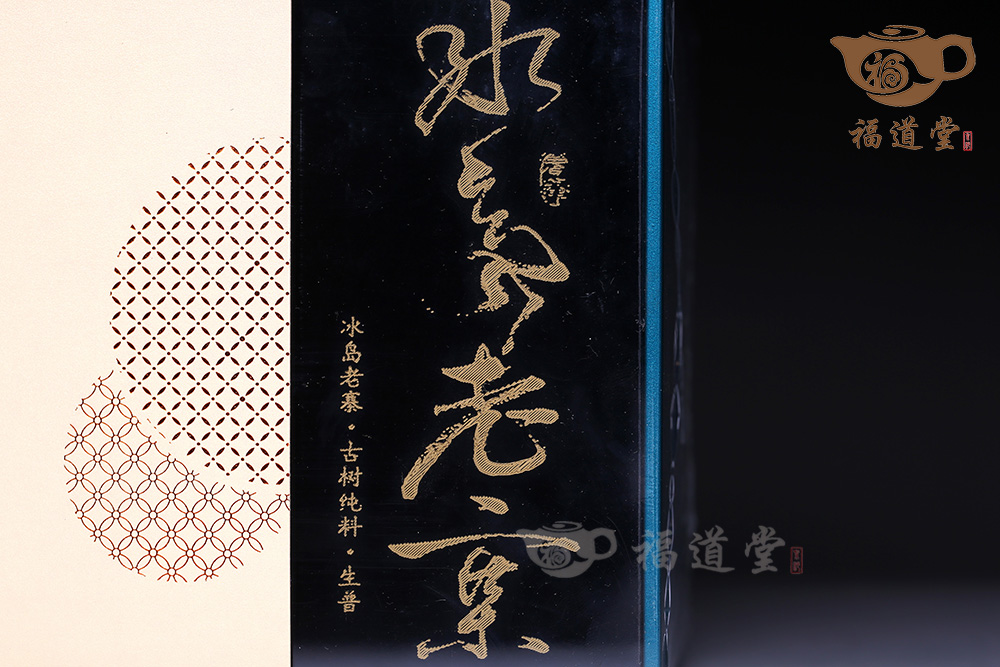 冰岛老寨
冰岛老寨·古树纯料·生普
福
福道堂
福
福道堂